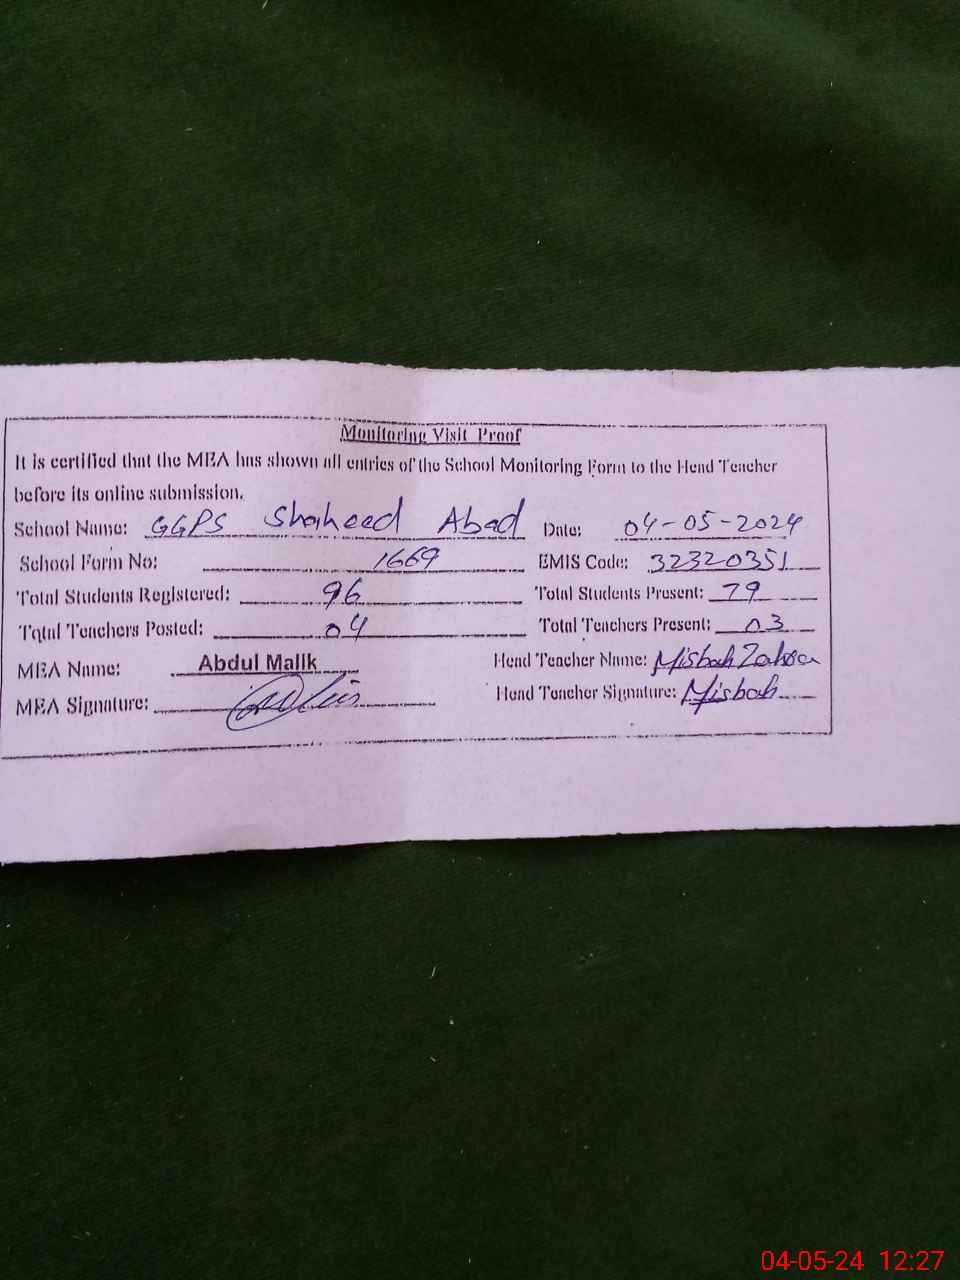 Monitoring Visit Proof
It is certified that the MEA has shown all entries of the School Monitoring Form to the Head Teacher
before its online submission.
School Name: GGPS Shaheed Abad Date: 04-05-2024
School Form No: 1669 EMIS Code: 32320351
Total Students Registered: 96 Total Students Present: 79
Total Teachers Posted: 04 Total Teachers Present: 03
MEA Name: Abdul Malik Head Teacher Name: Misbah Zahra
MEA Signature: Head Teacher Signature: Misbah
04-05-24 12:27